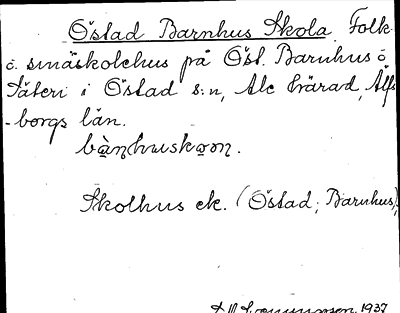 Östad Barnhus Skola. Folk-
o. småskolehus på Öst. Barnhus ö
Säteri i Östad s:n, Ale härad, Älfs
-borgs län.
bàṇhuskǫọn.
Skolhus ek. (Östad; Barnhus),
1937